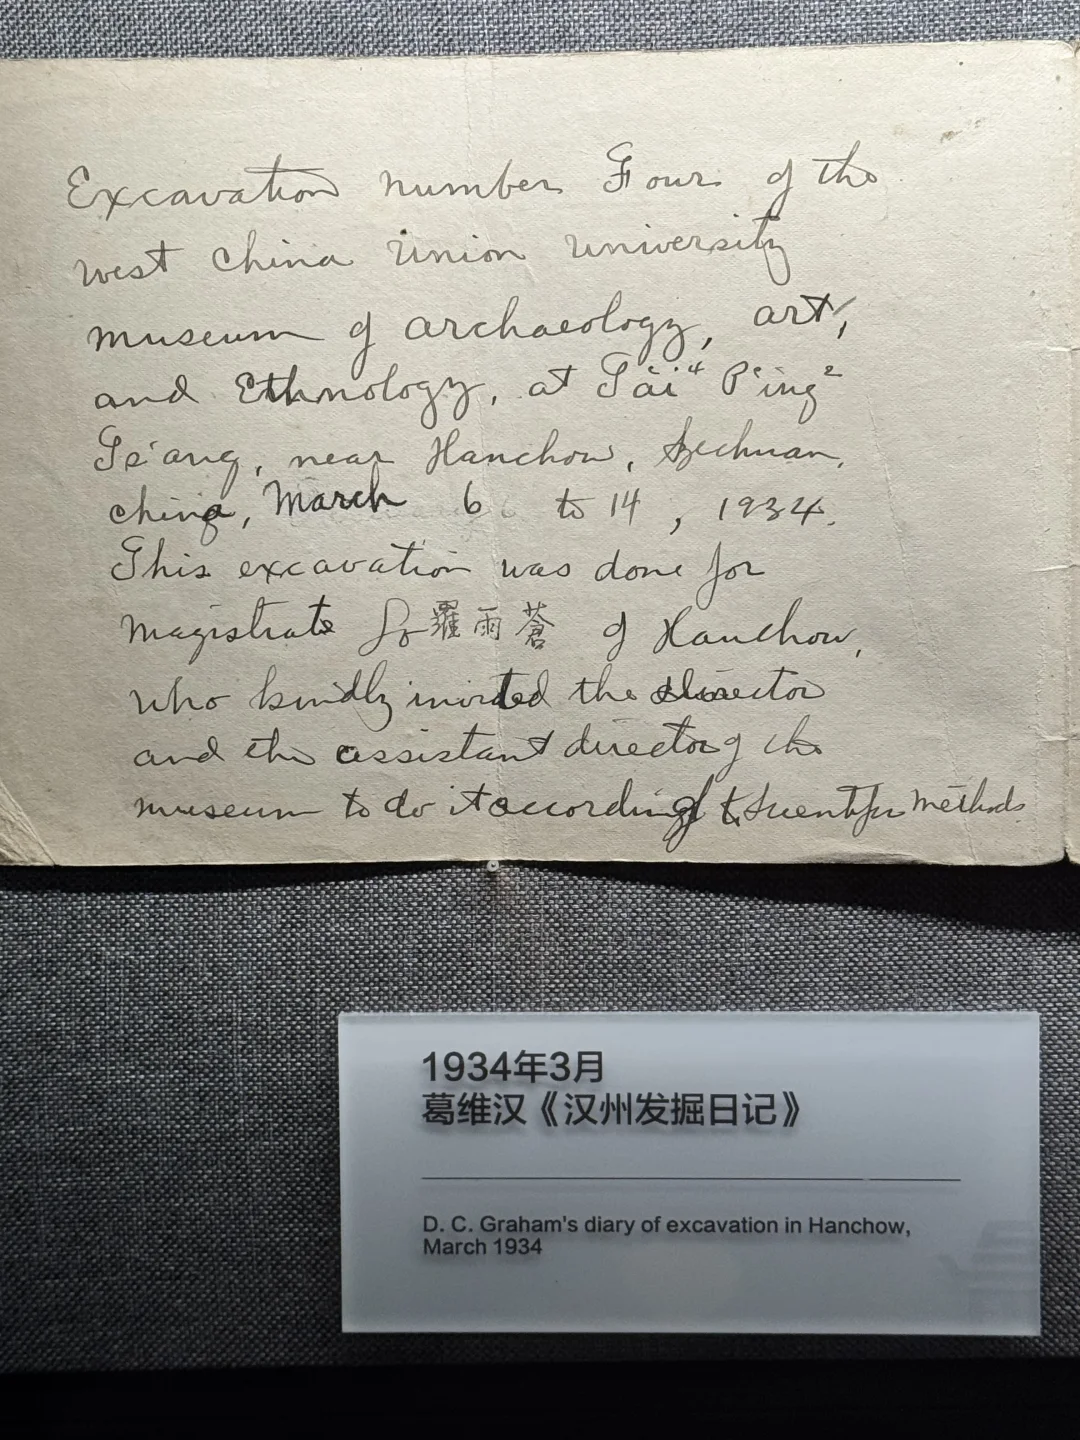 Excavation number Four of the
west China Union University
museum of archaeology, art,
and Ethnology, at T'ai⁴ P'ing²
Ts'ang, near Hanchow, Szechuan,
China, March 6 to 14, 1934.
This excavation was done for
magistrate 羅雨蒼 of Hanchow,
who kindly invited the director
and the assistant director of the
museum to do it according to scientific methods
1934年3月
葛维汉《汉州发掘日记》
D. C. Graham's diary of excavation in Hanchow,
March 1934